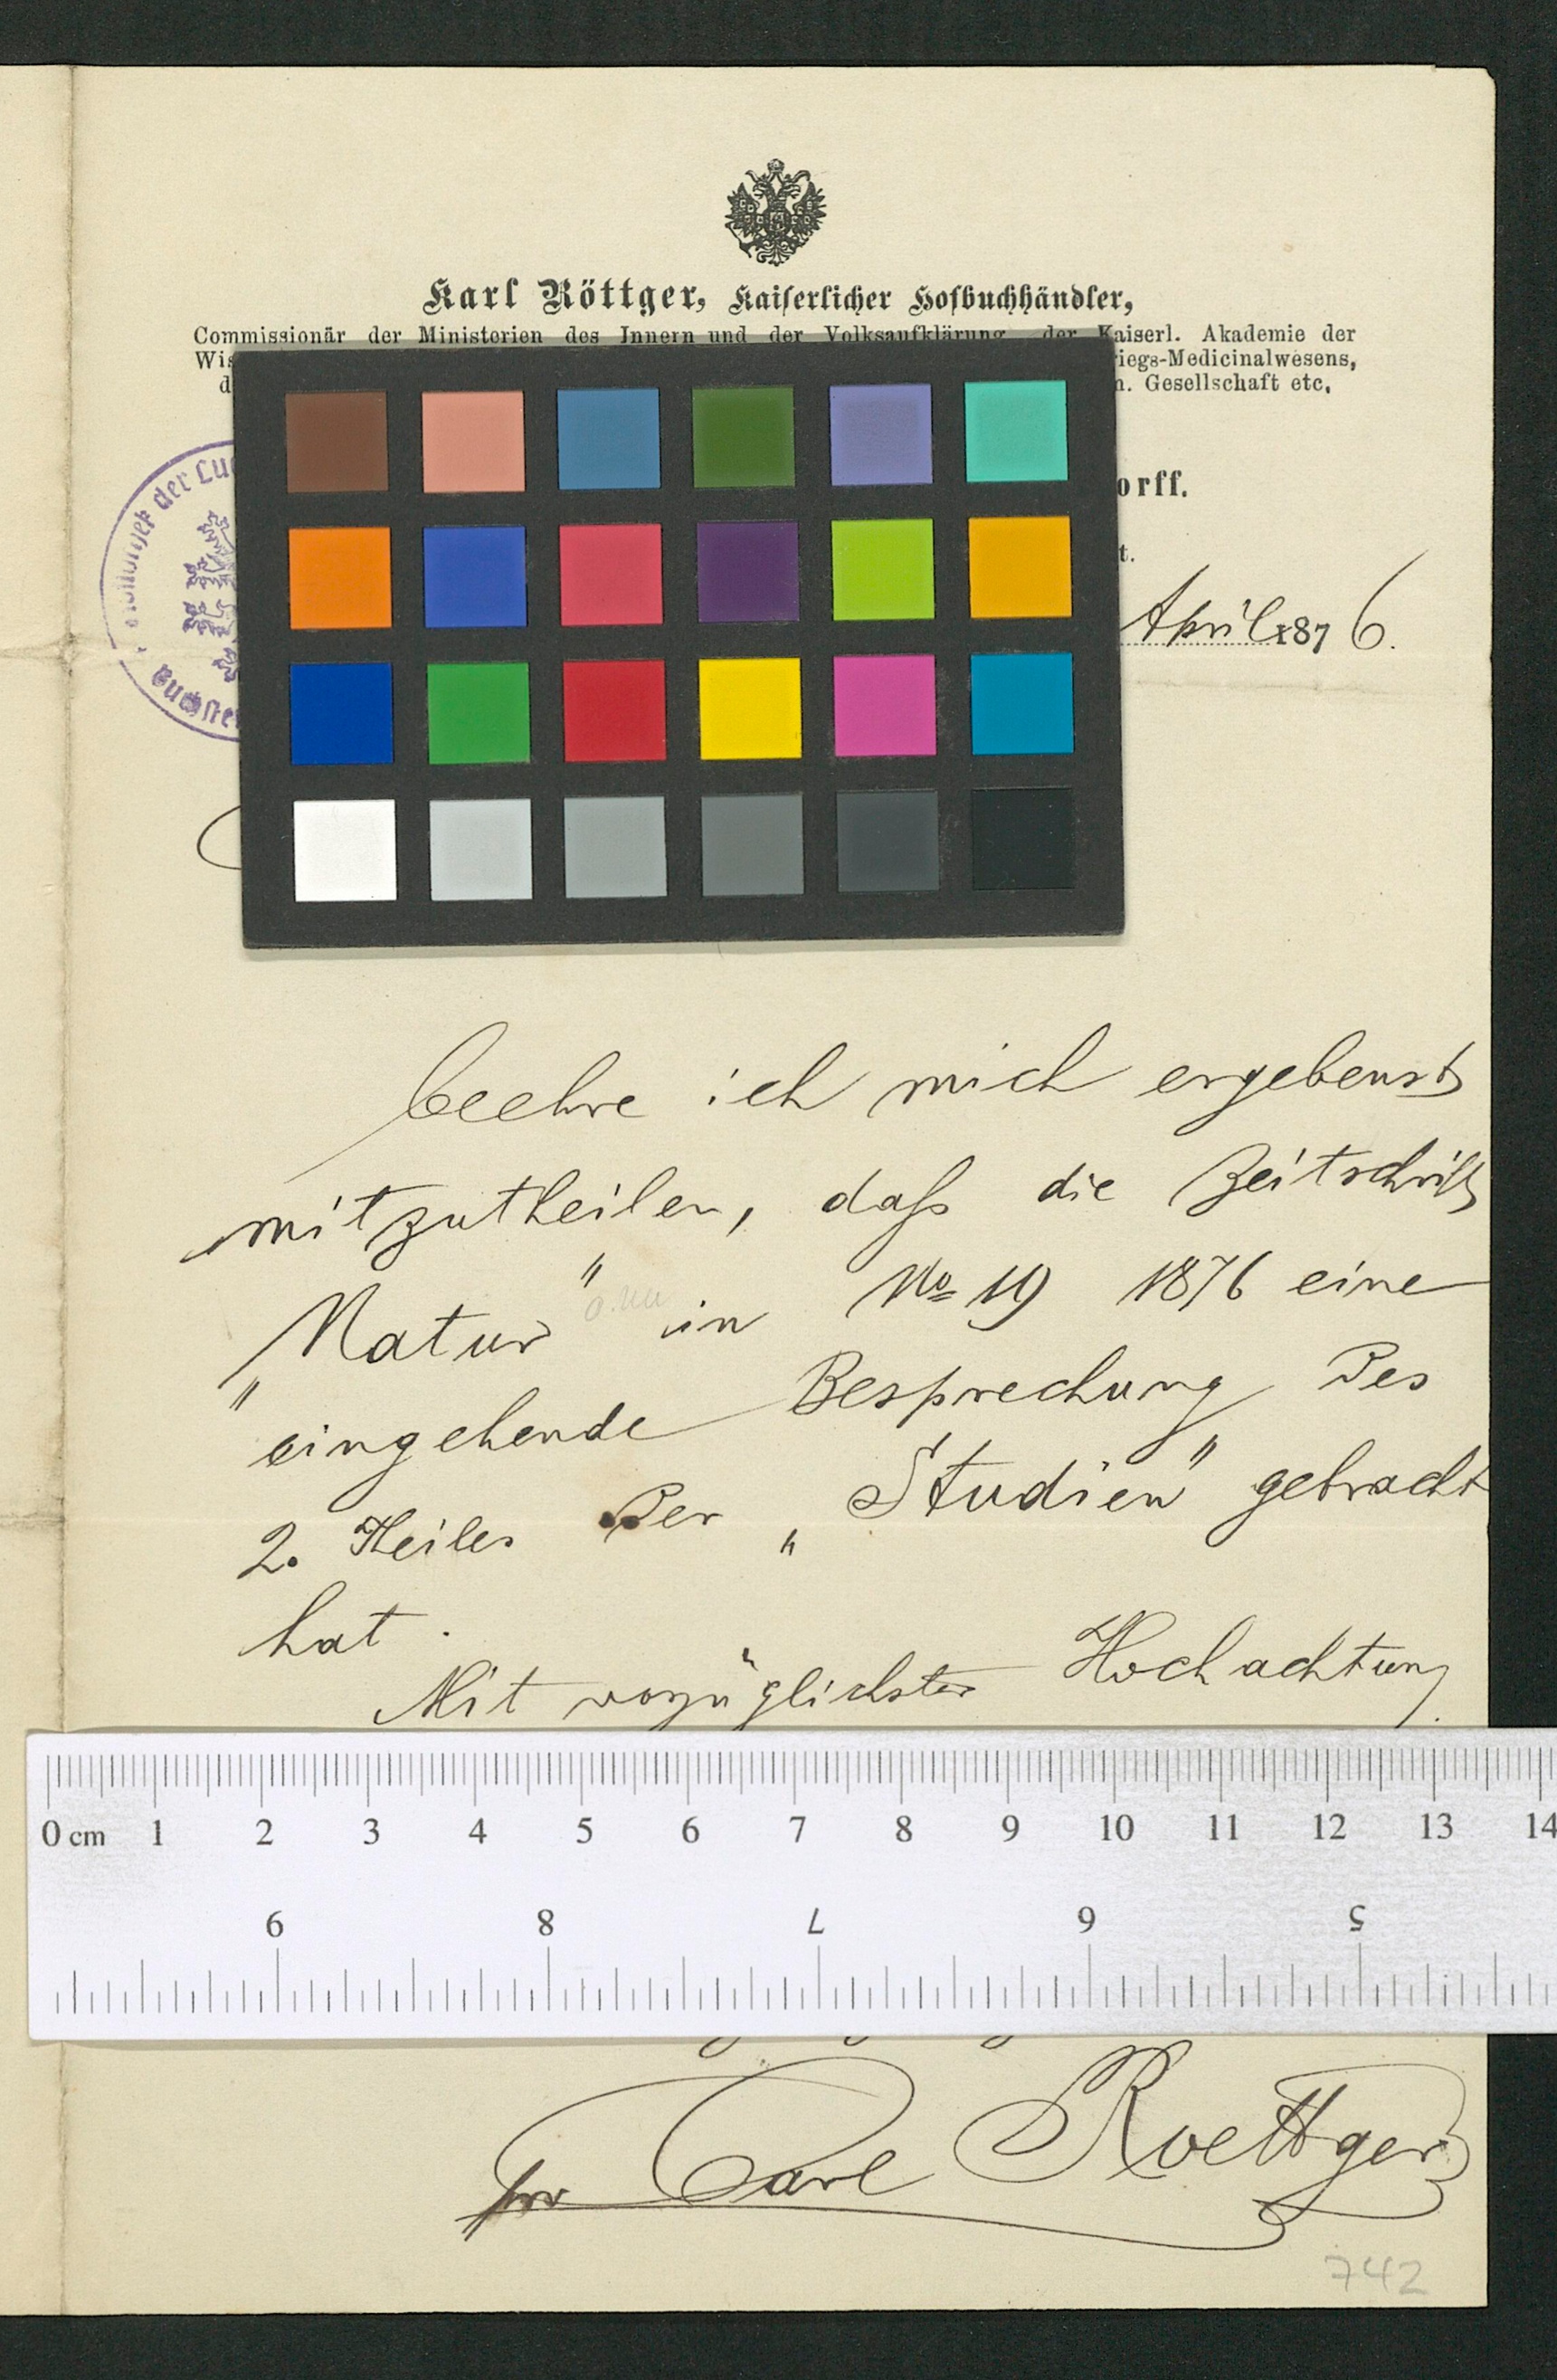 Karl Röttger, Kaiserlicher Hofbuchhändler,
Commissionär der Ministerien des Innern und der Volksaufklärung der Kaiserl. Akademie der
Wis riegs-Medicinalwesens,
d n. Gesellschaft etc.
der Lu
orff.
t.
April 1876.
Buchste
beehre ich mich ergebenst
mitzutheilen, daſs die Zeitschrift
„Natur" in No 19 1876 eine
eingehende Besprechung des
2. Theiles der „Studien" gebracht
hat.
Mit vorzüglichster Hochachtung
0 cm 1 2 3 4 5 6 7 8 9 10 11 12 13 14
9 8 7 6 5
pro Carl Roettger
742